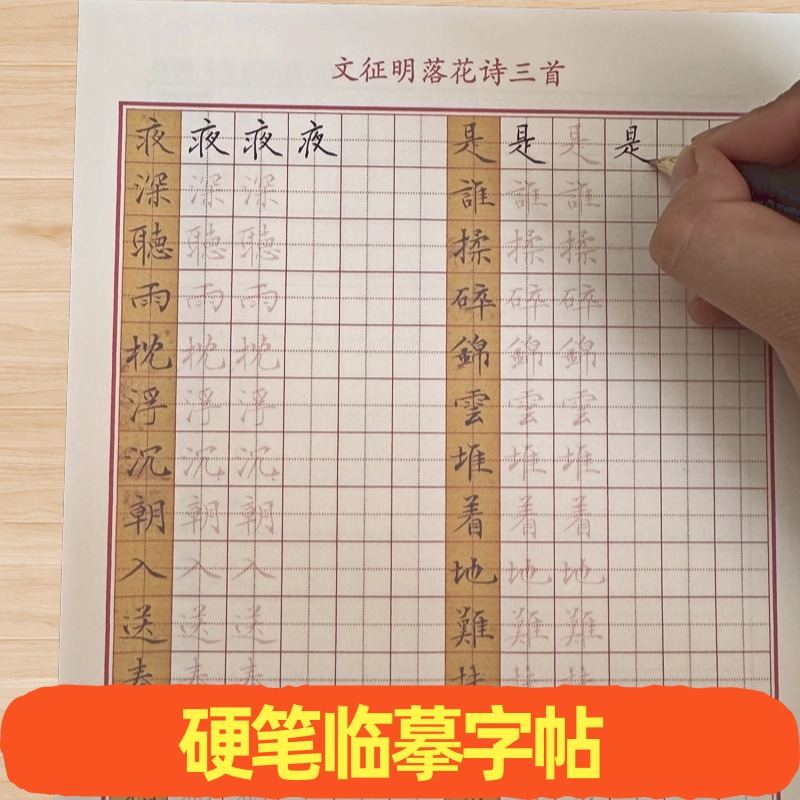 文征明落花诗三首
夜 夜 夜 夜 是 是 是 是
深 深 深 誰 誰 誰
聽 聽 聽 揉 揉 揉
雨 雨 雨 碎 碎 碎
枕 枕 枕 錦 錦 錦
浮 浮 浮 雲 雲 雲
沉 沉 沉 堆 堆 堆
朝 朝 朝 着 着 着
入 入 入 地 地 地
送 送 送 難 難 難
硬笔临摹字帖